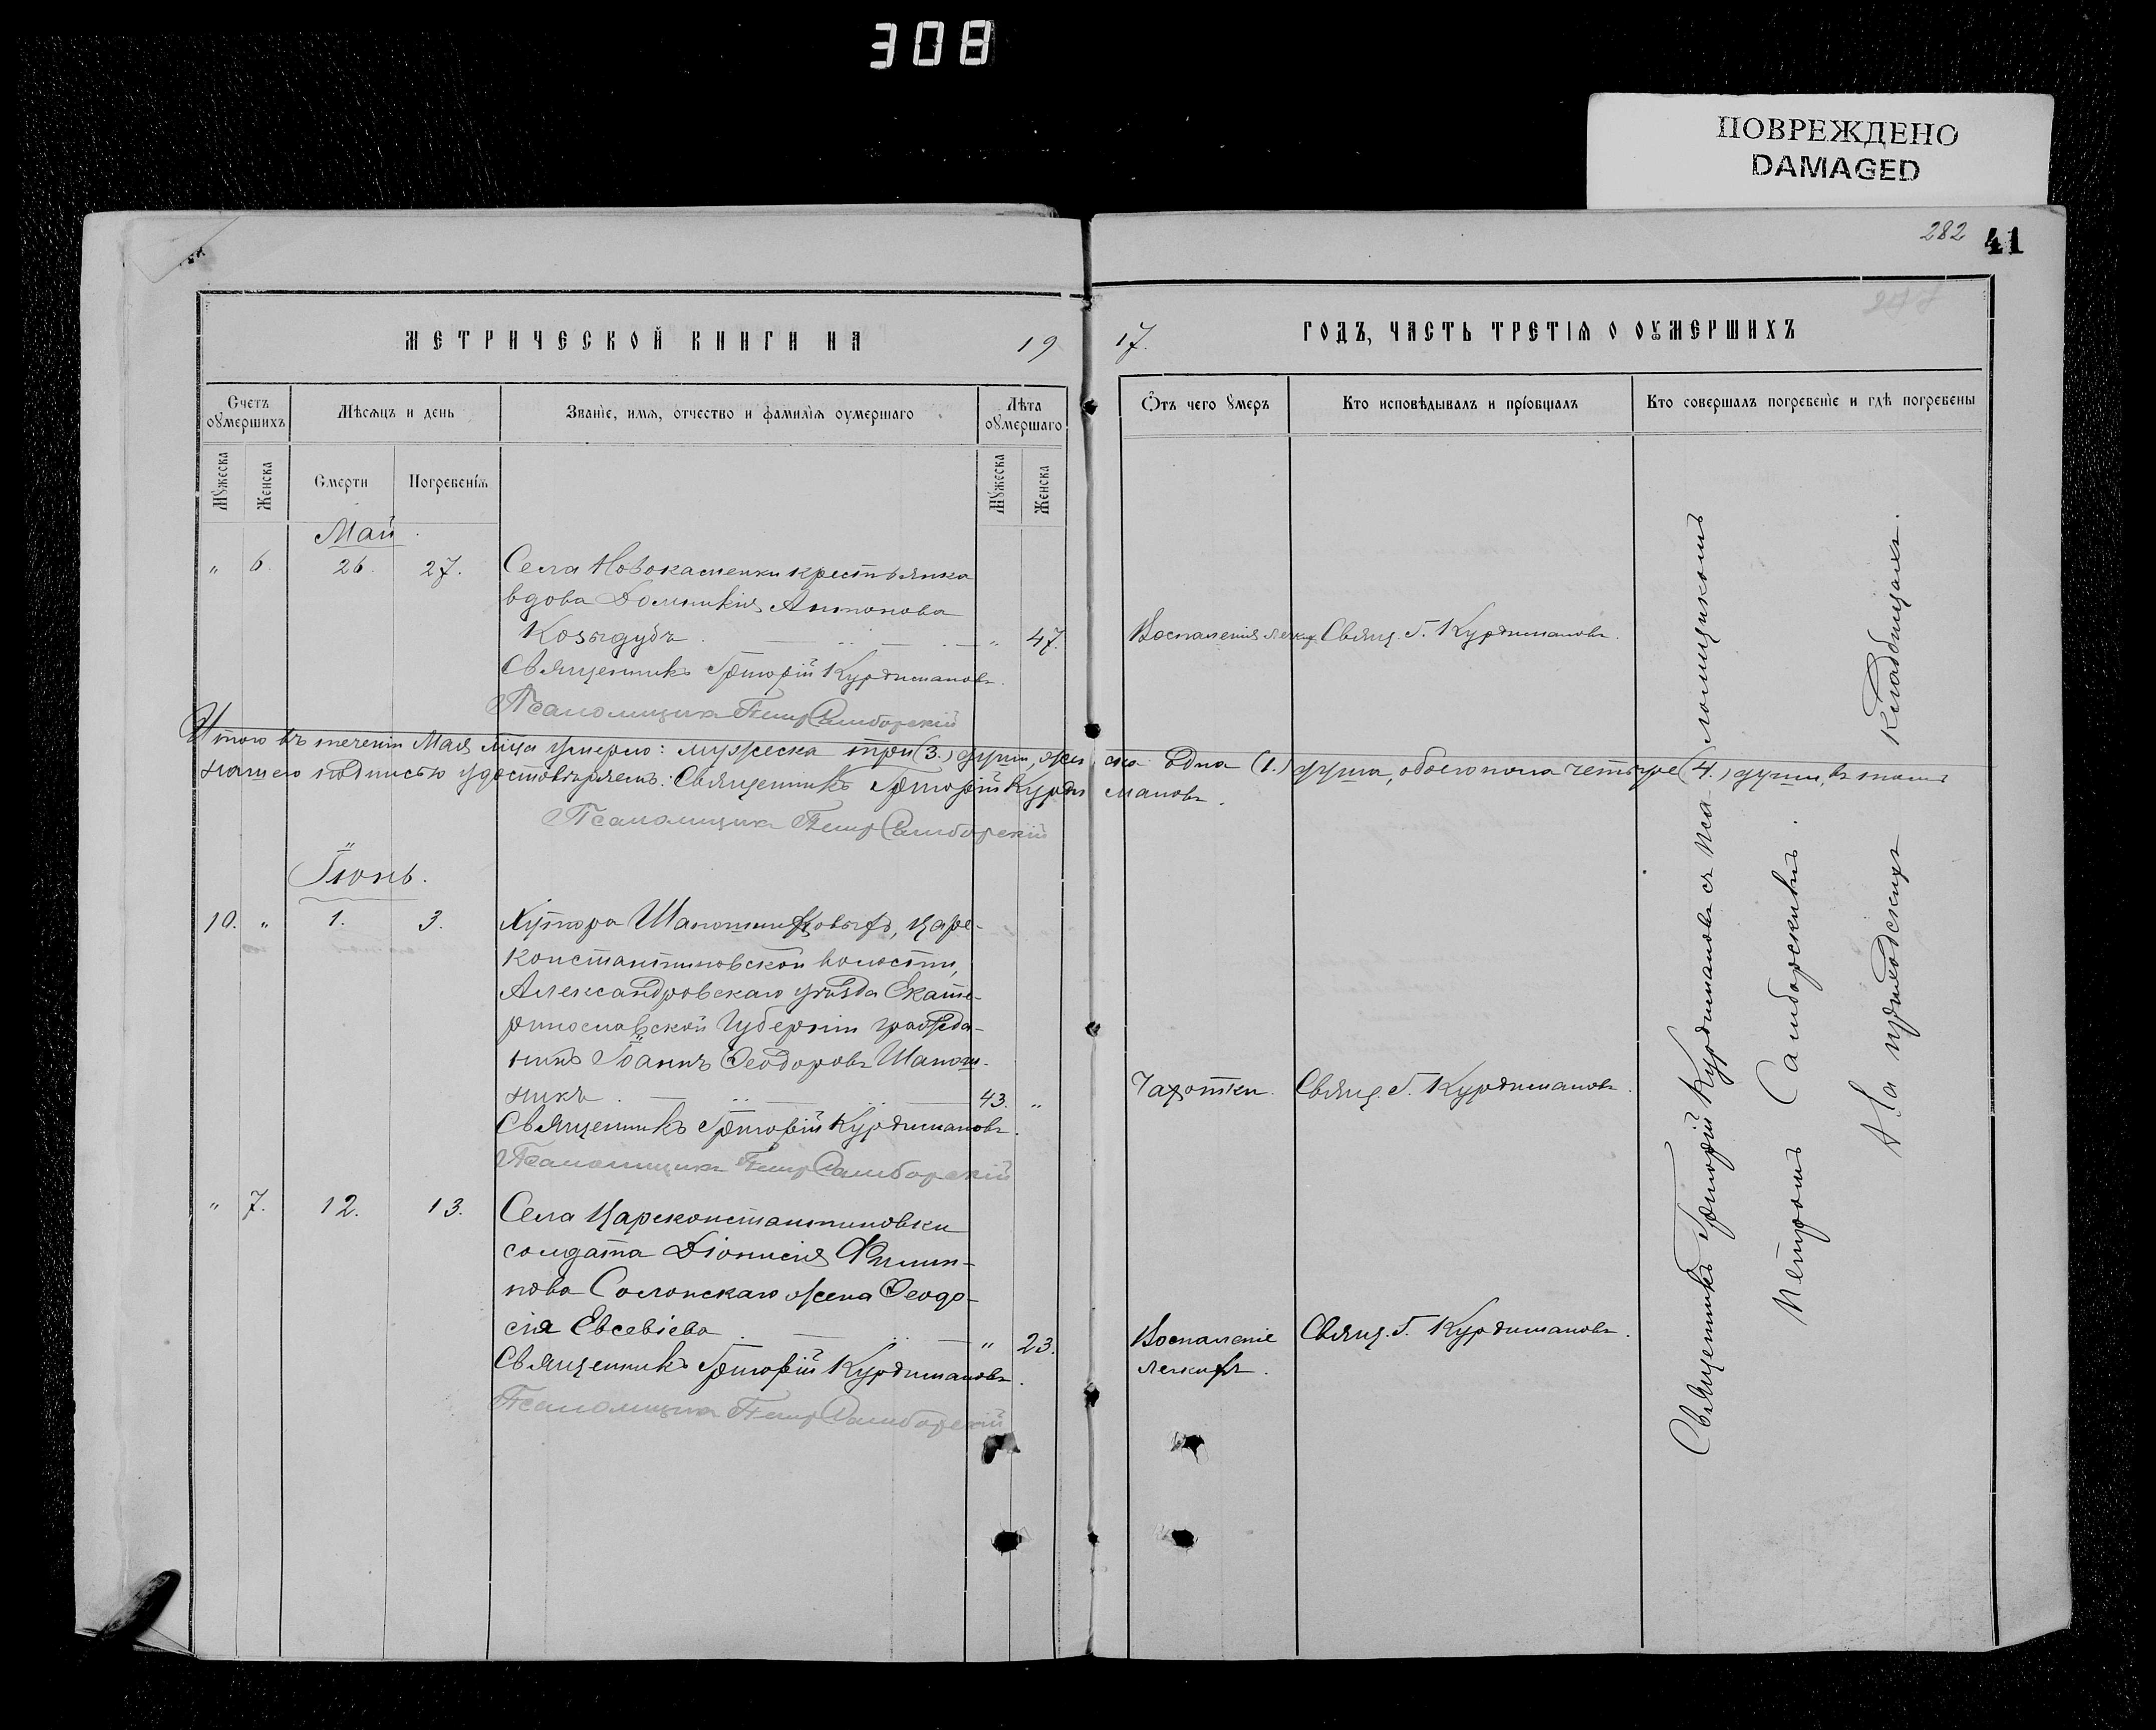 308
ПОВРЕЖДЕНО
DAMAGED
282 41
МЕТРИЧЕСКОЙ КНИГИ НА 1917. ГОДЪ, ЧАСТЬ ТРЕТІѦ О ОУМЕРШИХЪ
Счетъ оумершихъ
Мѣсѧцъ и день
Званіе, имѧ, отчество и фамиліѧ оумершаго
Лѣта оумершаго
Ѿтъ чего умеръ
Кто исповѣдывалъ и пріобщалъ
Кто совершалъ погребеніе и гдѣ погребены
Мужеска
Женска
Смерти
Погребеніѧ
Мужеска
Женска
Май.
" 6. 26. 27. Села Новокаменки крестьянка
вдова Домникія Антонова
Козыдубъ. " 47. Воспаленія легких Свящ. Г. Курдиманов.
Священникъ Григорій Курдиманов.
Псаломщикъ Петр Самборскій
Итого въ теченіи Мая м-ца умерло: мужеска три (3.) души, женска одна (1.) душа, обоего пола четыре (4.) души, в томъ
нашею подписью удостовѣряемъ: Священникъ Григорій Курдиманов.
Псаломщикъ Петр Самборскій
Іюнь.
10. " 1. 3. Хутора Шапошниковыхъ, Царе-
константиновской волости,
Александровскаго уѣзда Екате-
ринославской Губерніи гражда-
нинъ Іоаннъ Феодоровъ Шапош-
никъ. 43. " Чахотки. Свящ. Г. Курдиманов.
Священникъ Григорій Курдиманов.
Псаломщикъ Петр Самборскій
" 7. 12. 13. Села Цареконстантиновки
солдата Діонисія Филип-
пова Солонскаго жена Феодо-
сія Евсевіева. " 23. Воспаленіе Свящ. Г. Курдиманов.
легкихъ.
Священникъ Григорій Курдиманов.
Псаломщикъ Петр Самборскій
Священникъ Григорій Курдиманов съ пса-ломщикомъ
Петромъ Самборскимъ.
На приходскихъ кладбищахъ.